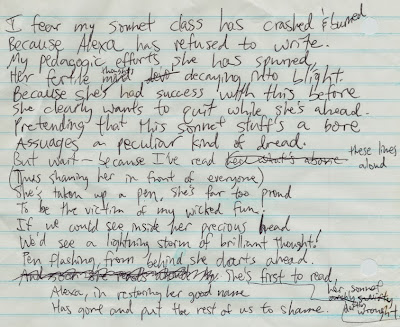 I fear my sonnet class has crashed & burned
Because Alexa has refused to write.
My pedagogic efforts she has spurned,
Her fertile mind decaying into blight.
Because she's had success with this before
She clearly wants to quit while she's ahead.
Pretending that this sonnet stuff's a bore
Assuages an peculiar kind of dread.
But wait— because I've read these lines aloud
(Thus shaming her in front of everyone)
She's taken up a pen, she's far too proud
To be the victim of my wicked fun.
If we could see inside her precious head
We'd see a lightning storm of brilliant thought!
Pen flashing, from behind she darts ahead.
She's first to read, her sonnet deftly wrought
Alexa, in restoring her good name
Has gone and put the rest of us to shame.